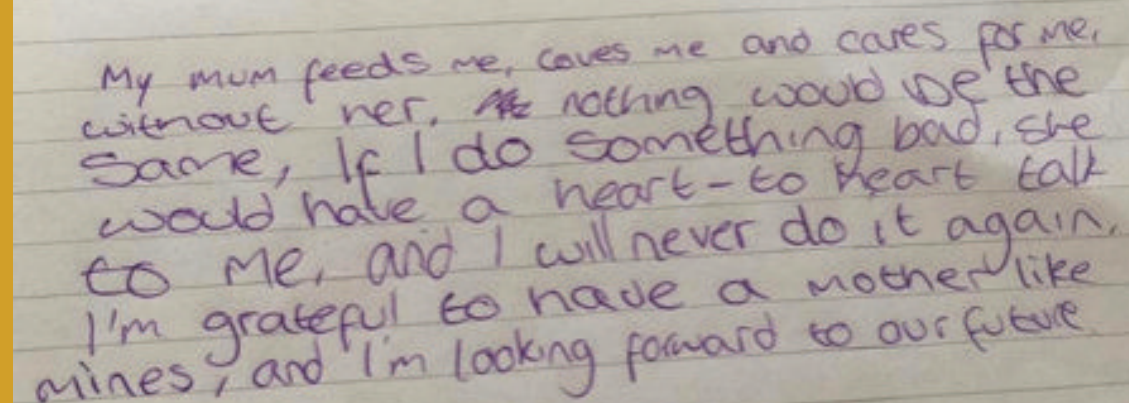 My mum feeds me, loves me and cares for me,
without her, nothing would be the
same, If I do something bad, she
would have a heart-to heart talk
to me, and I will never do it again,
I'm grateful to have a mother like
mines, and I'm looking forward to our future